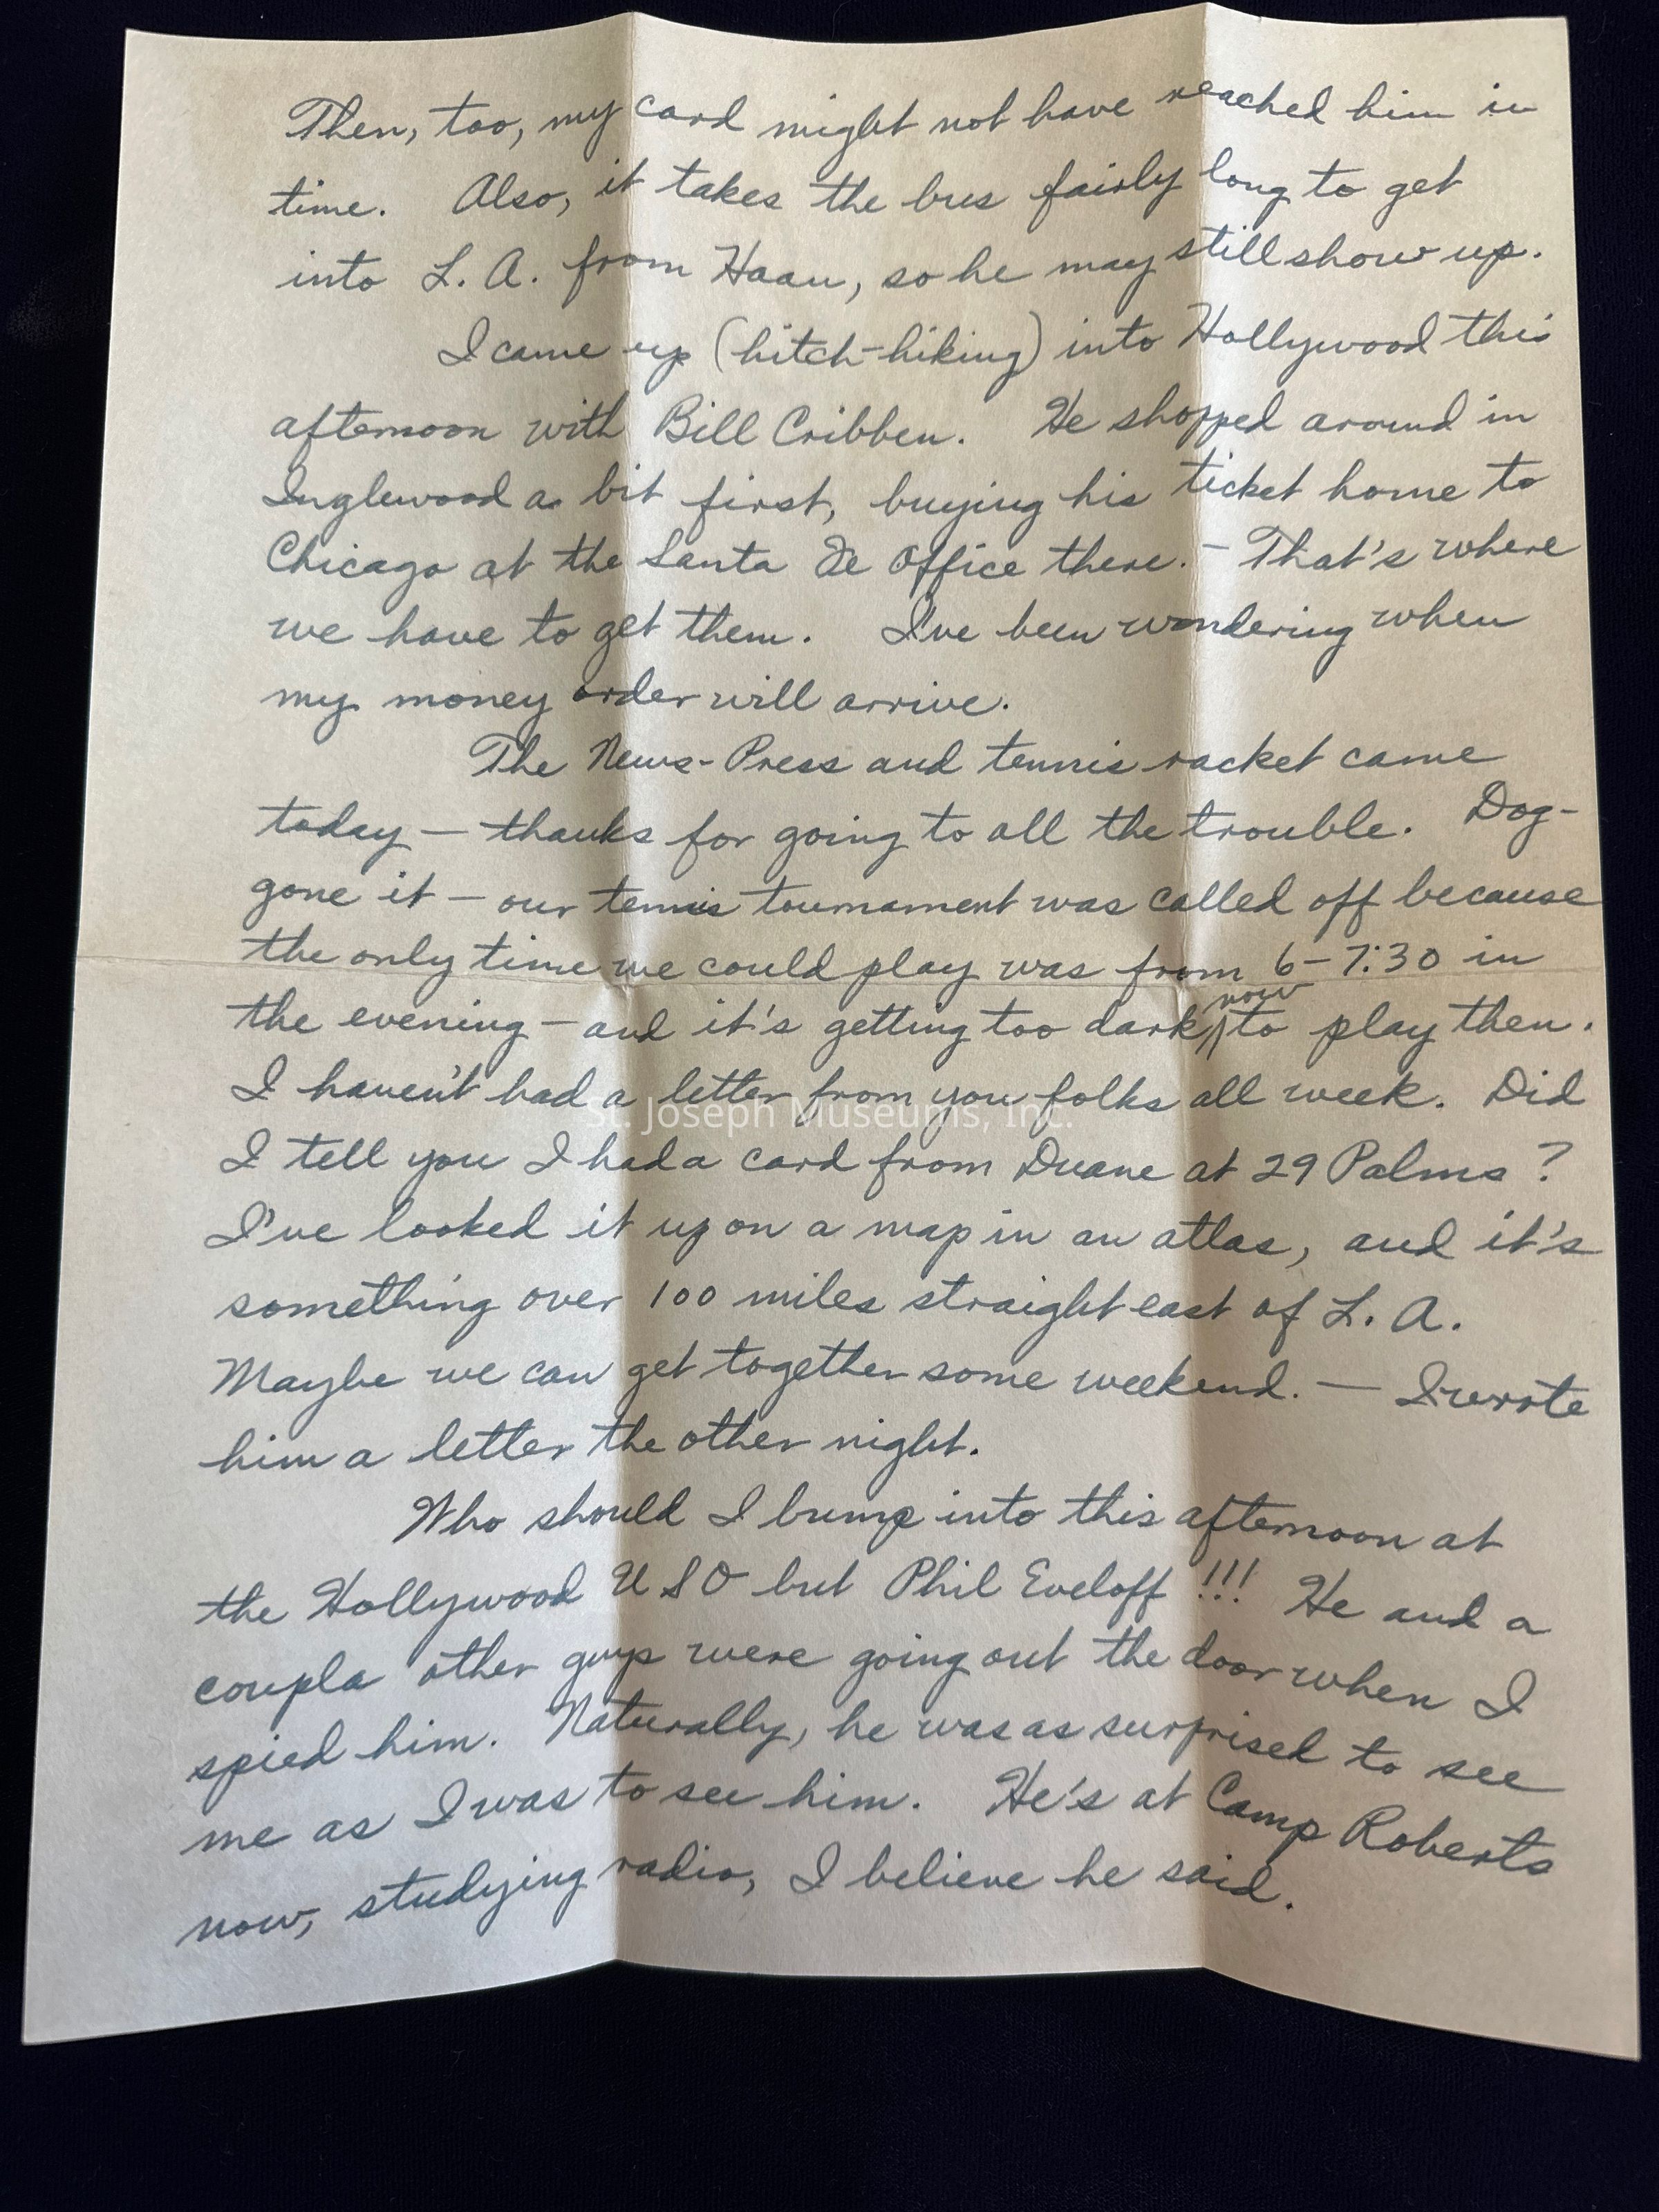 Then, too, my card might not have reached him in
time. Also, it takes the bus fairly long to get
into L. A. from Haan, so he may still show up.
I came up (hitch-hiking) into Hollywood this
afternoon with Bill Cribben. He shopped around in
Inglewood a bit first, buying his ticket home to
Chicago at the Santa Fe Office there. - That's where
we have to get them. I've been wondering when
my money order will arrive.
The News-Press and tennis racket came
today — thanks for going to all the trouble. Dog-
gone it — our tennis tournament was called off because
the only time we could play was from 6-7:30 in
now
the evening - and it's getting too dark to play then.
I haven't had a letter from you folks all week. Did
St. Joseph Museums, Inc.
I tell you I had a card from Duane at 29 Palms?
I've looked it up on a map in an atlas, and it's
something over 100 miles straight east of L. A.
Maybe we can get together some weekend. — I wrote
him a letter the other night.
Who should I bump into this afternoon at
the Hollywood USO but Phil Eveloff!!! He and a
coupla other guys were going out the door when I
spied him. Naturally, he was as surprised to see
me as I was to see him. He's at Camp Roberts
now, studying radio, I believe he said.